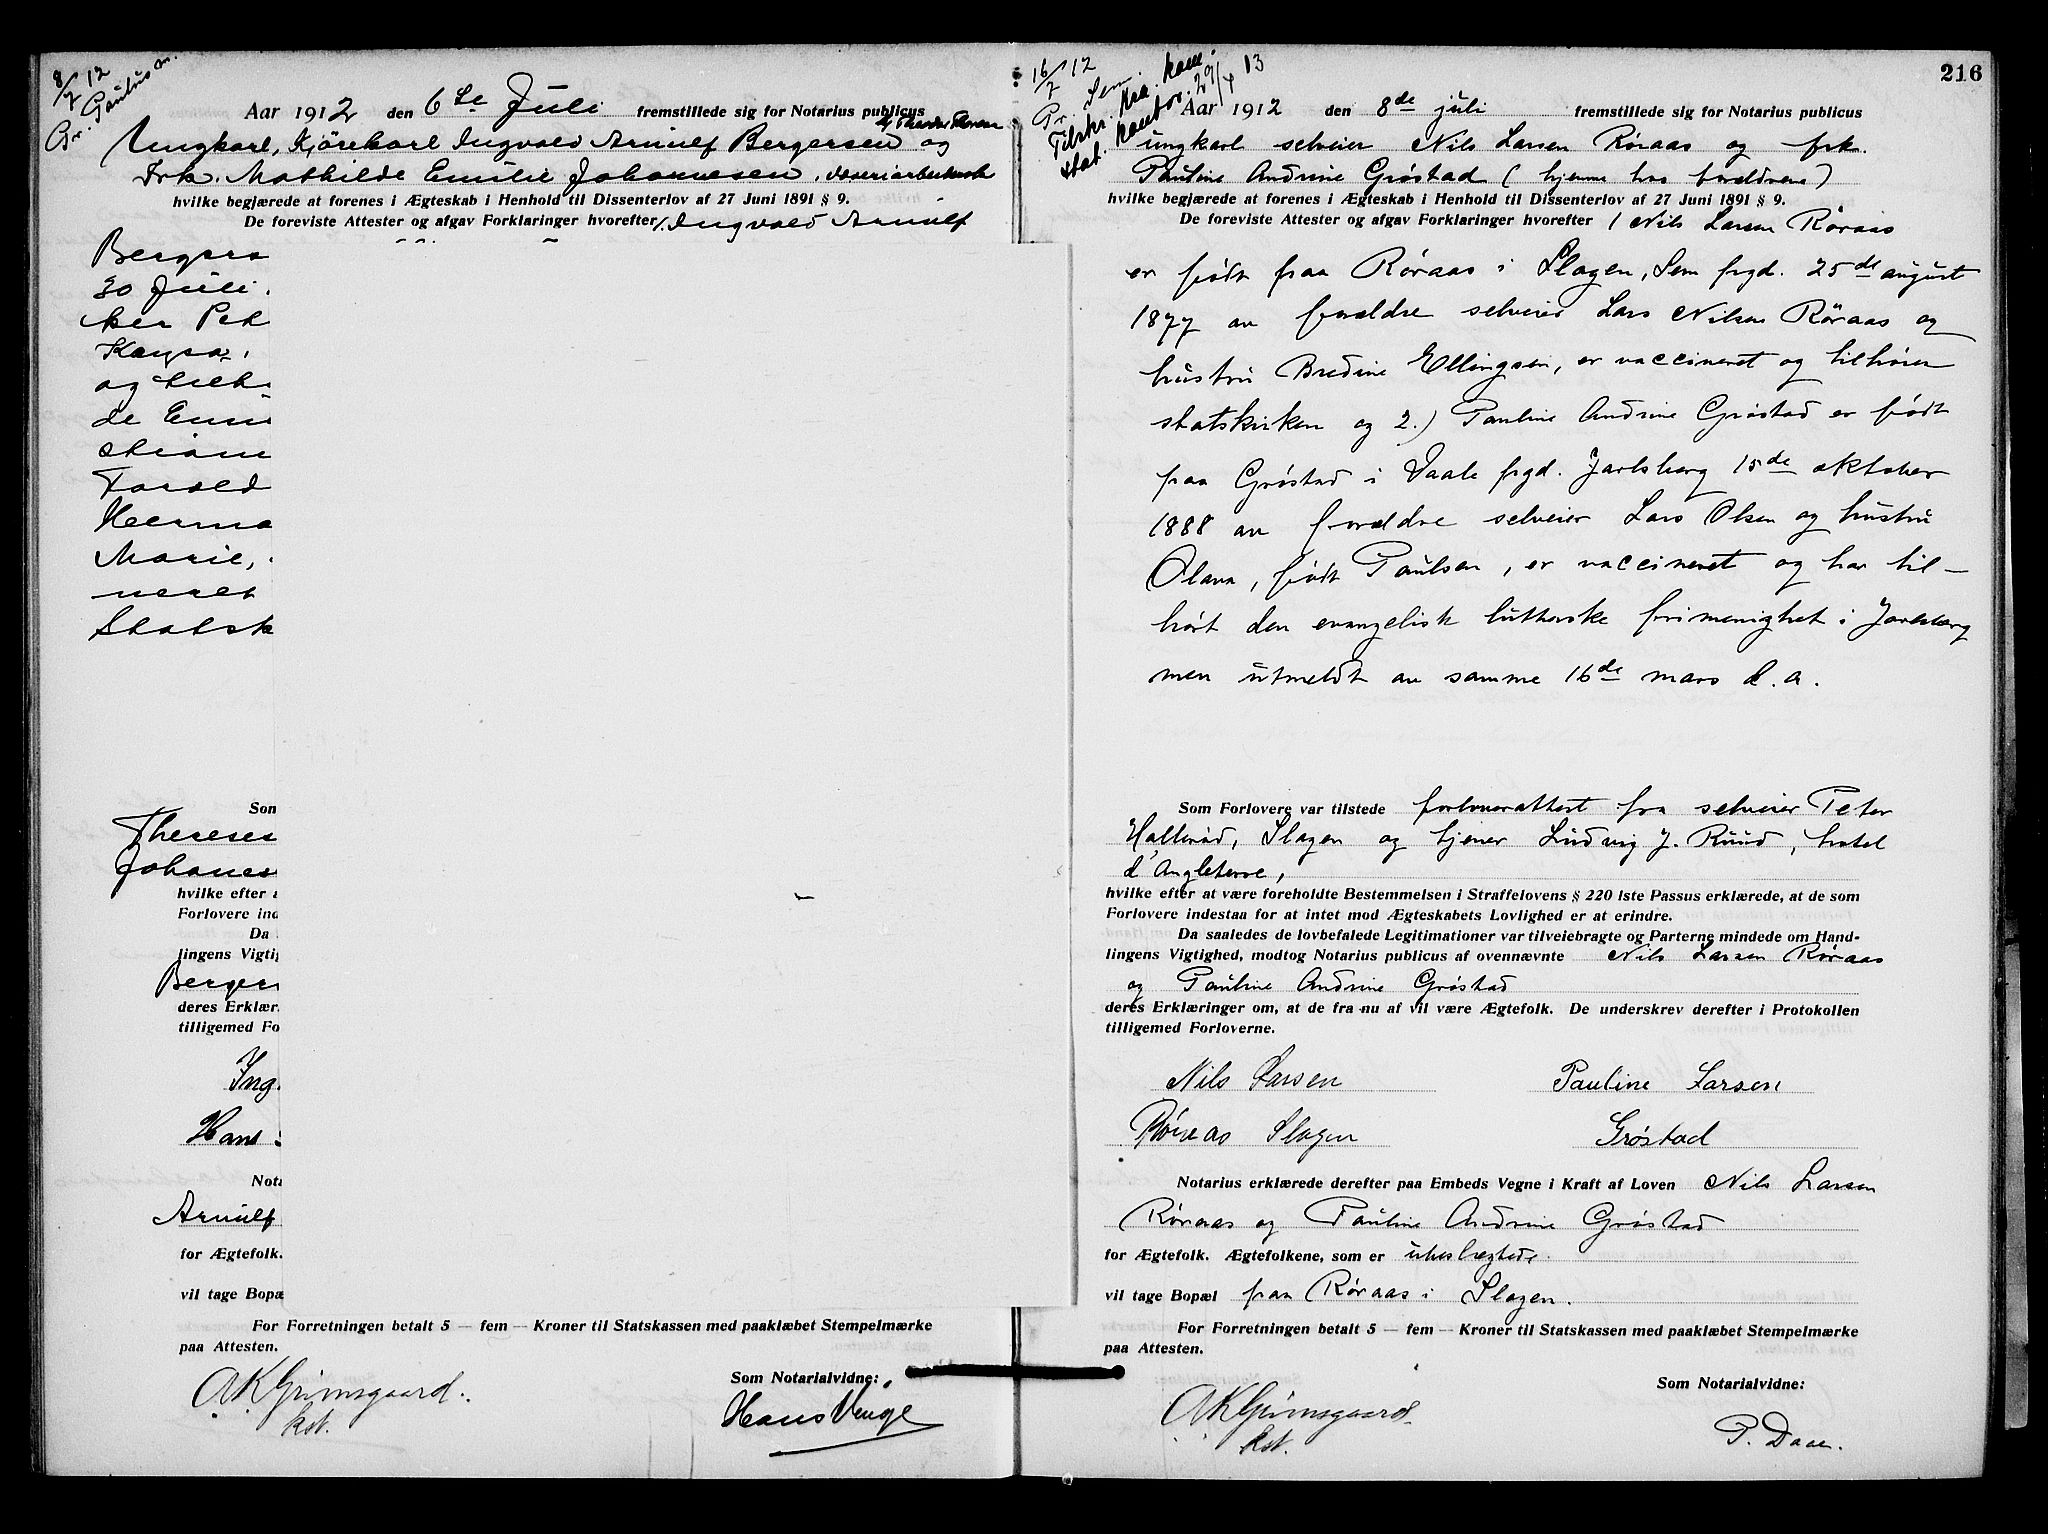 8/7 12
Pr. Paulus m.
Aar 1912 den 6te Juli fremstillede sig for Notarius publicus
Ungkarl, Kjørekarl Ingvald Arnulf Bergersen og
Frk. Mathilde Emilie Johannesen, væveriarbeiderske
hvilke begjærede at forenes i Ægteskab i Henhold til Dissenterlov af 27 Juni 1891 § 9.
De foreviste Attester og afgav Forklaringer hvorefter 1. Ingvald Arnulf
Bergers
30 Juli.
ker Pet
Kaysa,
og tilh
de Emi
stiani
Foræld
Herma
Marie,
neret
Statsk
Som
Therese
Johanes
hvilke efter a
Forlovere ind
Da
lingens Vigtig
Berger
deres Erklær
tilligemed Fo
Ing.
Hans
Nota
Arnulf
for Ægtefolk.
vil tage Bopæ
For Forretningen betalt 5 — fem — Kroner til Statskassen med paaklæbet Stempelmærke
paa Attesten.
Som Notarialvidne:
A K Grimsgaard.
kst.
Hans Venge
216
16/7 12
Pr. Sem.
Tilskr. Kra. kom
stat. kontor. 29/4 13
Aar 1912 den 8de juli fremstillede sig for Notarius publicus
ungkarl selveier Nils Larsen Røraas og frk.
Pauline Andrine Grøstad (hjemme hos forældrene)
hvilke begjærede at forenes i Ægteskab i Henhold til Dissenterlov af 27 Juni 1891 § 9.
De foreviste Attester og afgav Forklaringer hvorefter 1 Nils Larsen Røraas
er født paa Røraas i Slagen, Sem prgd. 25de august
1877 av forældre selveier Lars Nilsen Røraas og
hustru Bredine Ellingsen, er vaccineret og tilhører
statskirken og 2.) Pauline Andrine Grøstad er født
paa Grøstad i Vaale prgd. Jarlsberg 15de oktober
1888 av forældre selveier Lars Olsen og hustru
Olava, født Paulsen, er vaccineret og har til-
hørt den evangelisk lutherske frimenighet i Jarlsberg
men utmeldt av samme 16de mars d.a.
Som Forlovere var tilstede forloverattest fra selveier Peter
Hallerød, Slagen og tjener Ludvig J. Ruud, hotel
d'Angleterre,
hvilke efter at være foreholdte Bestemmelsen i Straffelovens § 220 1ste Passus erklærede, at de som
Forlovere indestaa for at intet mod Ægteskabets Lovlighed er at erindre.
Da saaledes de lovbefalede Legitimationer var tilveiebragte og Parterne mindede om Hand-
lingens Vigtighed, modtog Notarius publicus af ovennævnte Nils Larsen Røraas
og Pauline Andrine Grøstad
deres Erklæringer om, at de fra nu af vil være Ægtefolk. De underskrev derefter i Protokollen
tilligemed Forloverne.
Nils Larsen Pauline Larsen
Røraas Slagen Grøstad
Notarius erklærede derefter paa Embeds Vegne i Kraft af Loven Nils Larsen
Røraas og Pauline Andrine Grøstad
for Ægtefolk. Ægtefolkene, som er ubeslægtede.
vil tage Bopæl paa Røraas i Slagen.
For Forretningen betalt 5 — fem — Kroner til Statskassen med paaklæbet Stempelmærke
paa Attesten.
Som Notarialvidne:
A K Grimsgaard.
kst.
P. Daae.